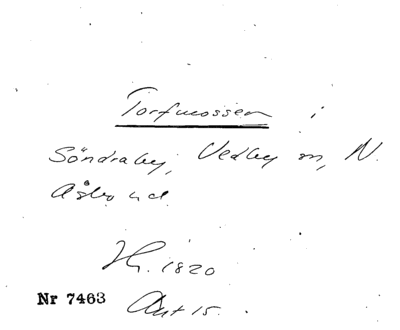 Torfmossen i
Söndraby, Vedby sn, N.
Åsbo hd.
H. 1820
Nr 7463 Akt 15.